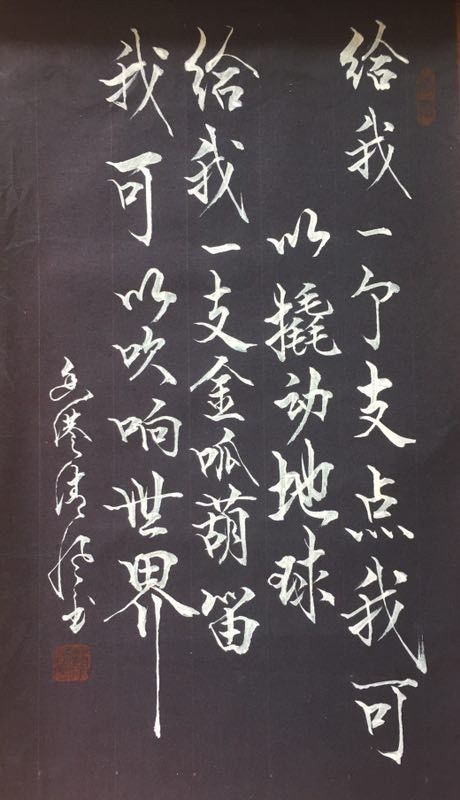 给我一个支点我可
以撬动地球
给我一支金呱葫笛
我可以吹响世界
香港清风书